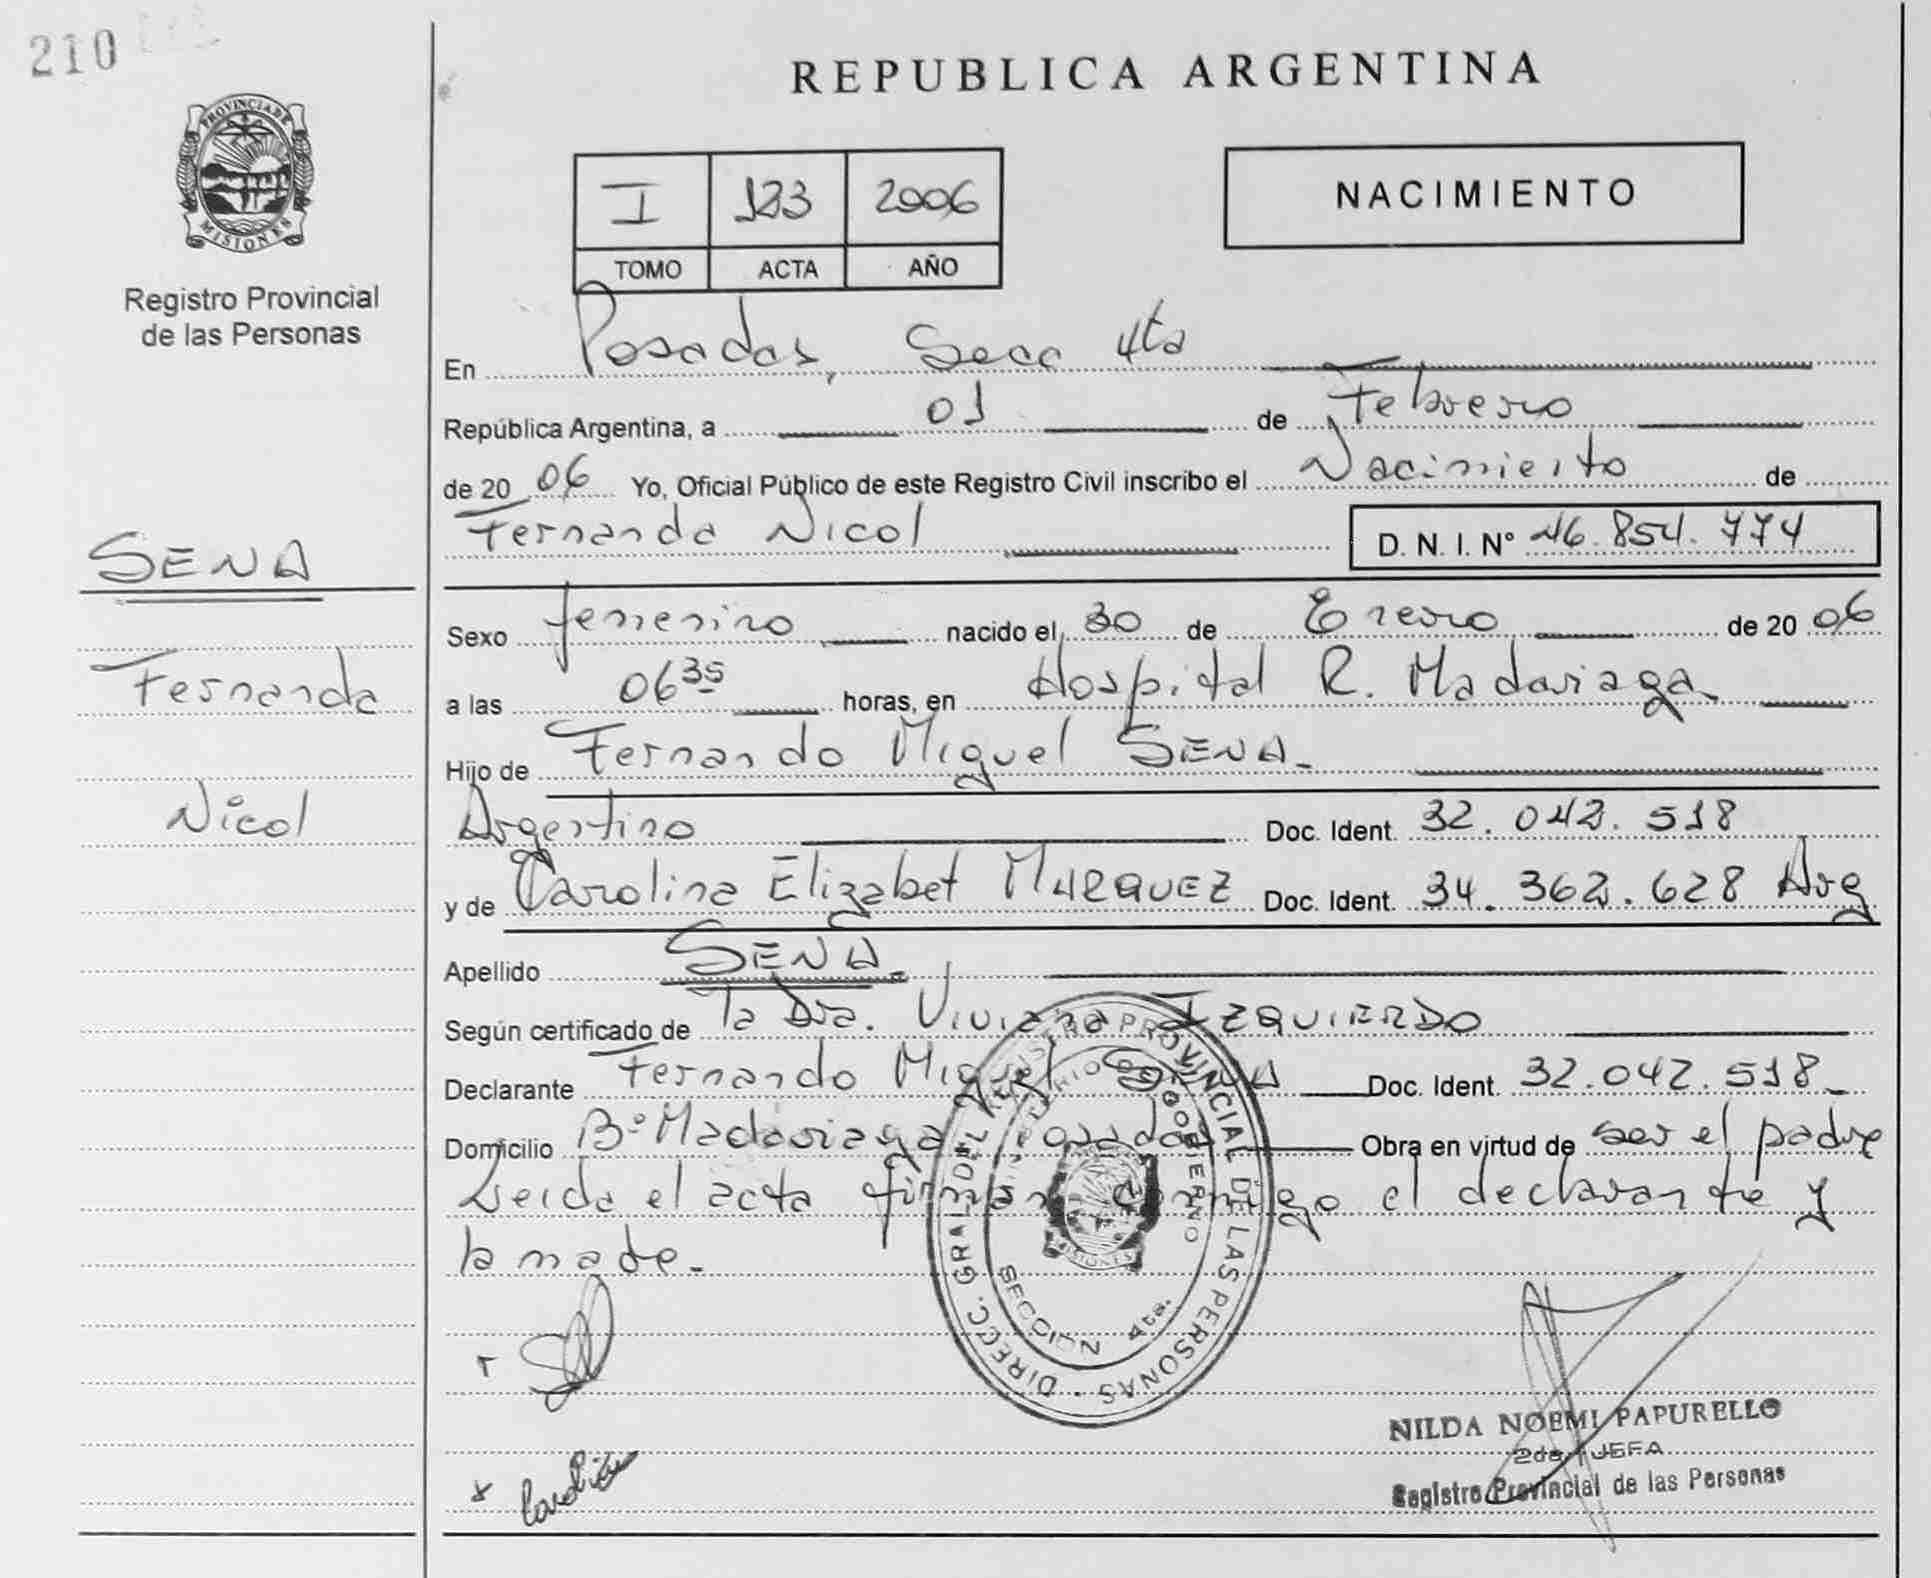 210
REPUBLICA ARGENTINA
PROVINCIA DE MISIONES
Registro Provincial
de las Personas
I 123 2006
TOMO ACTA AÑO
NACIMIENTO
En Posadas, Secc 4ta
República Argentina, a 01 de Febrero
de 20 06 Yo, Oficial Público de este Registro Civil inscribo el Nacimiento de
Fernanda Nicol D. N. I. Nº 46.854.774
SENA
Fernanda
Nicol
Sexo femenino nacido el 30 de Enero de 20 06
a las 06 35 horas, en Hospital R. Madariaga
Hijo de Fernando Miguel SENA
Argentino Doc. Ident. 32.042.518
y de Carolina Elizabet MARQUEZ Doc. Ident. 34.362.628 Arg
Apellido SENA
Según certificado de la Dra. Viviana IZQUIERDO
Declarante Fernando Miguel SENA Doc. Ident. 32.042.518
Domicilio Bº Madariaga Posadas Obra en virtud de ser el padre
Leida el acta firman conmigo el declarante y
la madre.
DIRECC. GRAL DEL REGISTRO PROVINCIAL DE LAS PERSONAS
MINISTERIO DE GOBIERNO
MISIONES
SECCION 4ta.
Carolina
NILDA NOEMI PAPURELLO
2da JEFA
Registro Provincial de las Personas